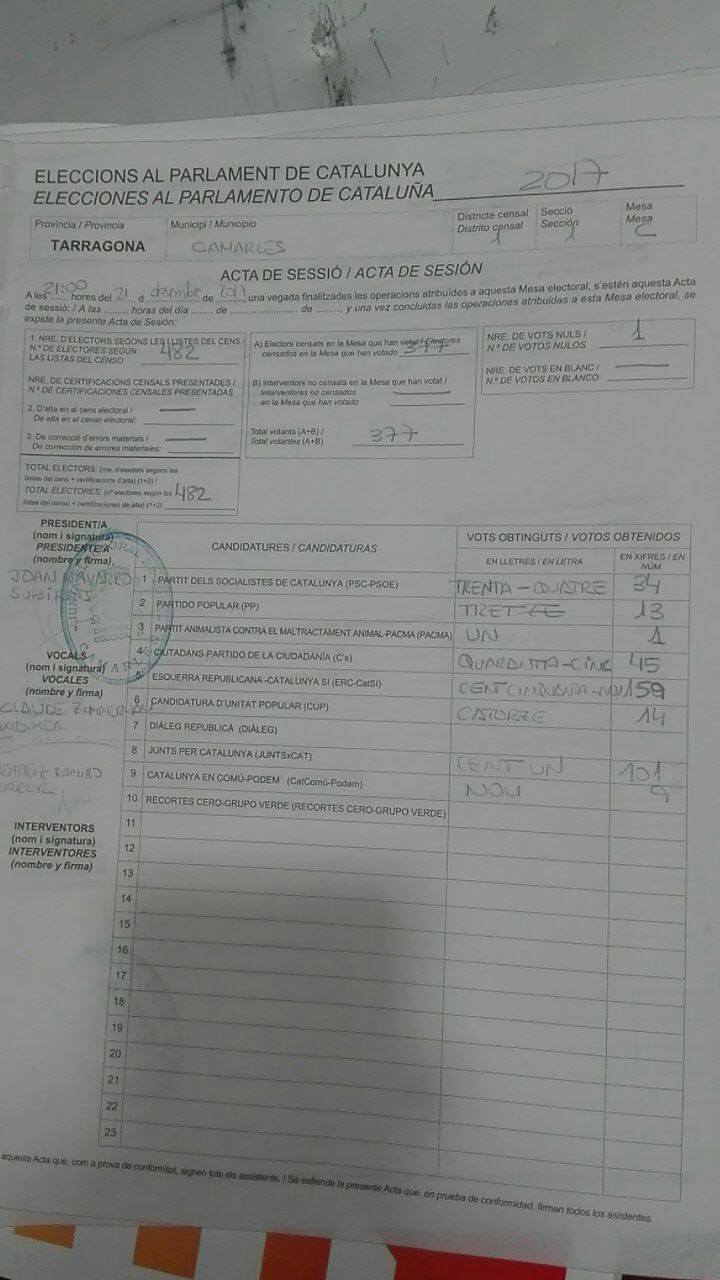 ELECCIONS AL PARLAMENT DE CATALUNYA
ELECCIONES AL PARLAMENTO DE CATALUÑA 2017
Província / Provincia
TARRAGONA
Municipi / Municipio
CAMARLES
Districte censal
Distrito censal
1
Secció
Sección
1
Mesa
Mesa
C
ACTA DE SESSIÓ / ACTA DE SESIÓN
A les 21:00 hores del 21 d desembre de 2017, una vegada finalitzades les operacions atribuïdes a aquesta Mesa electoral, s'estén aquesta Acta
de sessió: / A las ........ horas del día ....... de ..................... de ......., y una vez concluidas las operaciones atribuidas a esta Mesa electoral, se
expide la presente Acta de Sesión:
1. NRE. D'ELECTORS SEGONS LES LLISTES DEL CENS /
N.º DE ELECTORES SEGÚN
LAS LISTAS DEL CENSO 482
NRE. DE CERTIFICACIONS CENSALS PRESENTADES /
N.º DE CERTIFICACIONES CENSALES PRESENTADAS
2. D'alta en el cens electoral /
De alta en el censo electoral:
3. De correcció d'errors materials /
De corrección de errores materiales:
TOTAL ELECTORS: (nre. d'electors segons les
llistes del cens + certificacions d'alta) (1+2) /
TOTAL ELECTORES: (nº electores según las
listas del censo + certificaciones de alta) (1+2) 482
A) Electors censats en la Mesa que han votat / Electores
censados en la Mesa que han votado 377
B) Interventors no censats en la Mesa que han votat /
Interventores no censados
en la Mesa que han votado
Total votants (A+B) /
Total votantes (A+B) 377
NRE. DE VOTS NULS /
N.º DE VOTOS NULOS 1
NRE. DE VOTS EN BLANC /
N.º DE VOTOS EN BLANCO
PRESIDENT/A
(nom i signatura)
PRESIDENTE/A
(nombre y firma)
JOAN NAVARRO
SUBIRATS
VOCALS
(nom i signatura)
VOCALES
(nombre y firma)
CLAUDE ZIMMERMAN
INTERVENTORS
(nom i signatura)
INTERVENTORES
(nombre y firma)
CANDIDATURES / CANDIDATURAS
VOTS OBTINGUTS / VOTOS OBTENIDOS
EN LLETRES / EN LETRA
EN XIFRES / EN NÚM.
1 PARTIT DELS SOCIALISTES DE CATALUNYA (PSC-PSOE) TRENTA-QUATRE 34
2 PARTIDO POPULAR (PP) TRETZE 13
3 PARTIT ANIMALISTA CONTRA EL MALTRACTAMENT ANIMAL-PACMA (PACMA) UN 1
4 CIUTADANS-PARTIDO DE LA CIUDADANÍA (C's) QUARANTA-CINC 45
5 ESQUERRA REPUBLICANA -CATALUNYA SÍ (ERC-CatSí) CENT CINQUANTA-NOU 159
6 CANDIDATURA D'UNITAT POPULAR (CUP) CATORZE 14
7 DIÀLEG REPUBLICÀ (DIÀLEG)
8 JUNTS PER CATALUNYA (JUNTSxCAT) CENT UN 101
9 CATALUNYA EN COMÚ-PODEM (CatComú-Podem) NOU 9
10 RECORTES CERO-GRUPO VERDE (RECORTES CERO-GRUPO VERDE)
11
12
13
14
15
16
17
18
19
20
21
22
23
aquesta Acta que, com a prova de conformitat, signen tots els assistents. / Se extiende la presente Acta que, en prueba de conformidad, firman todos los asistentes.